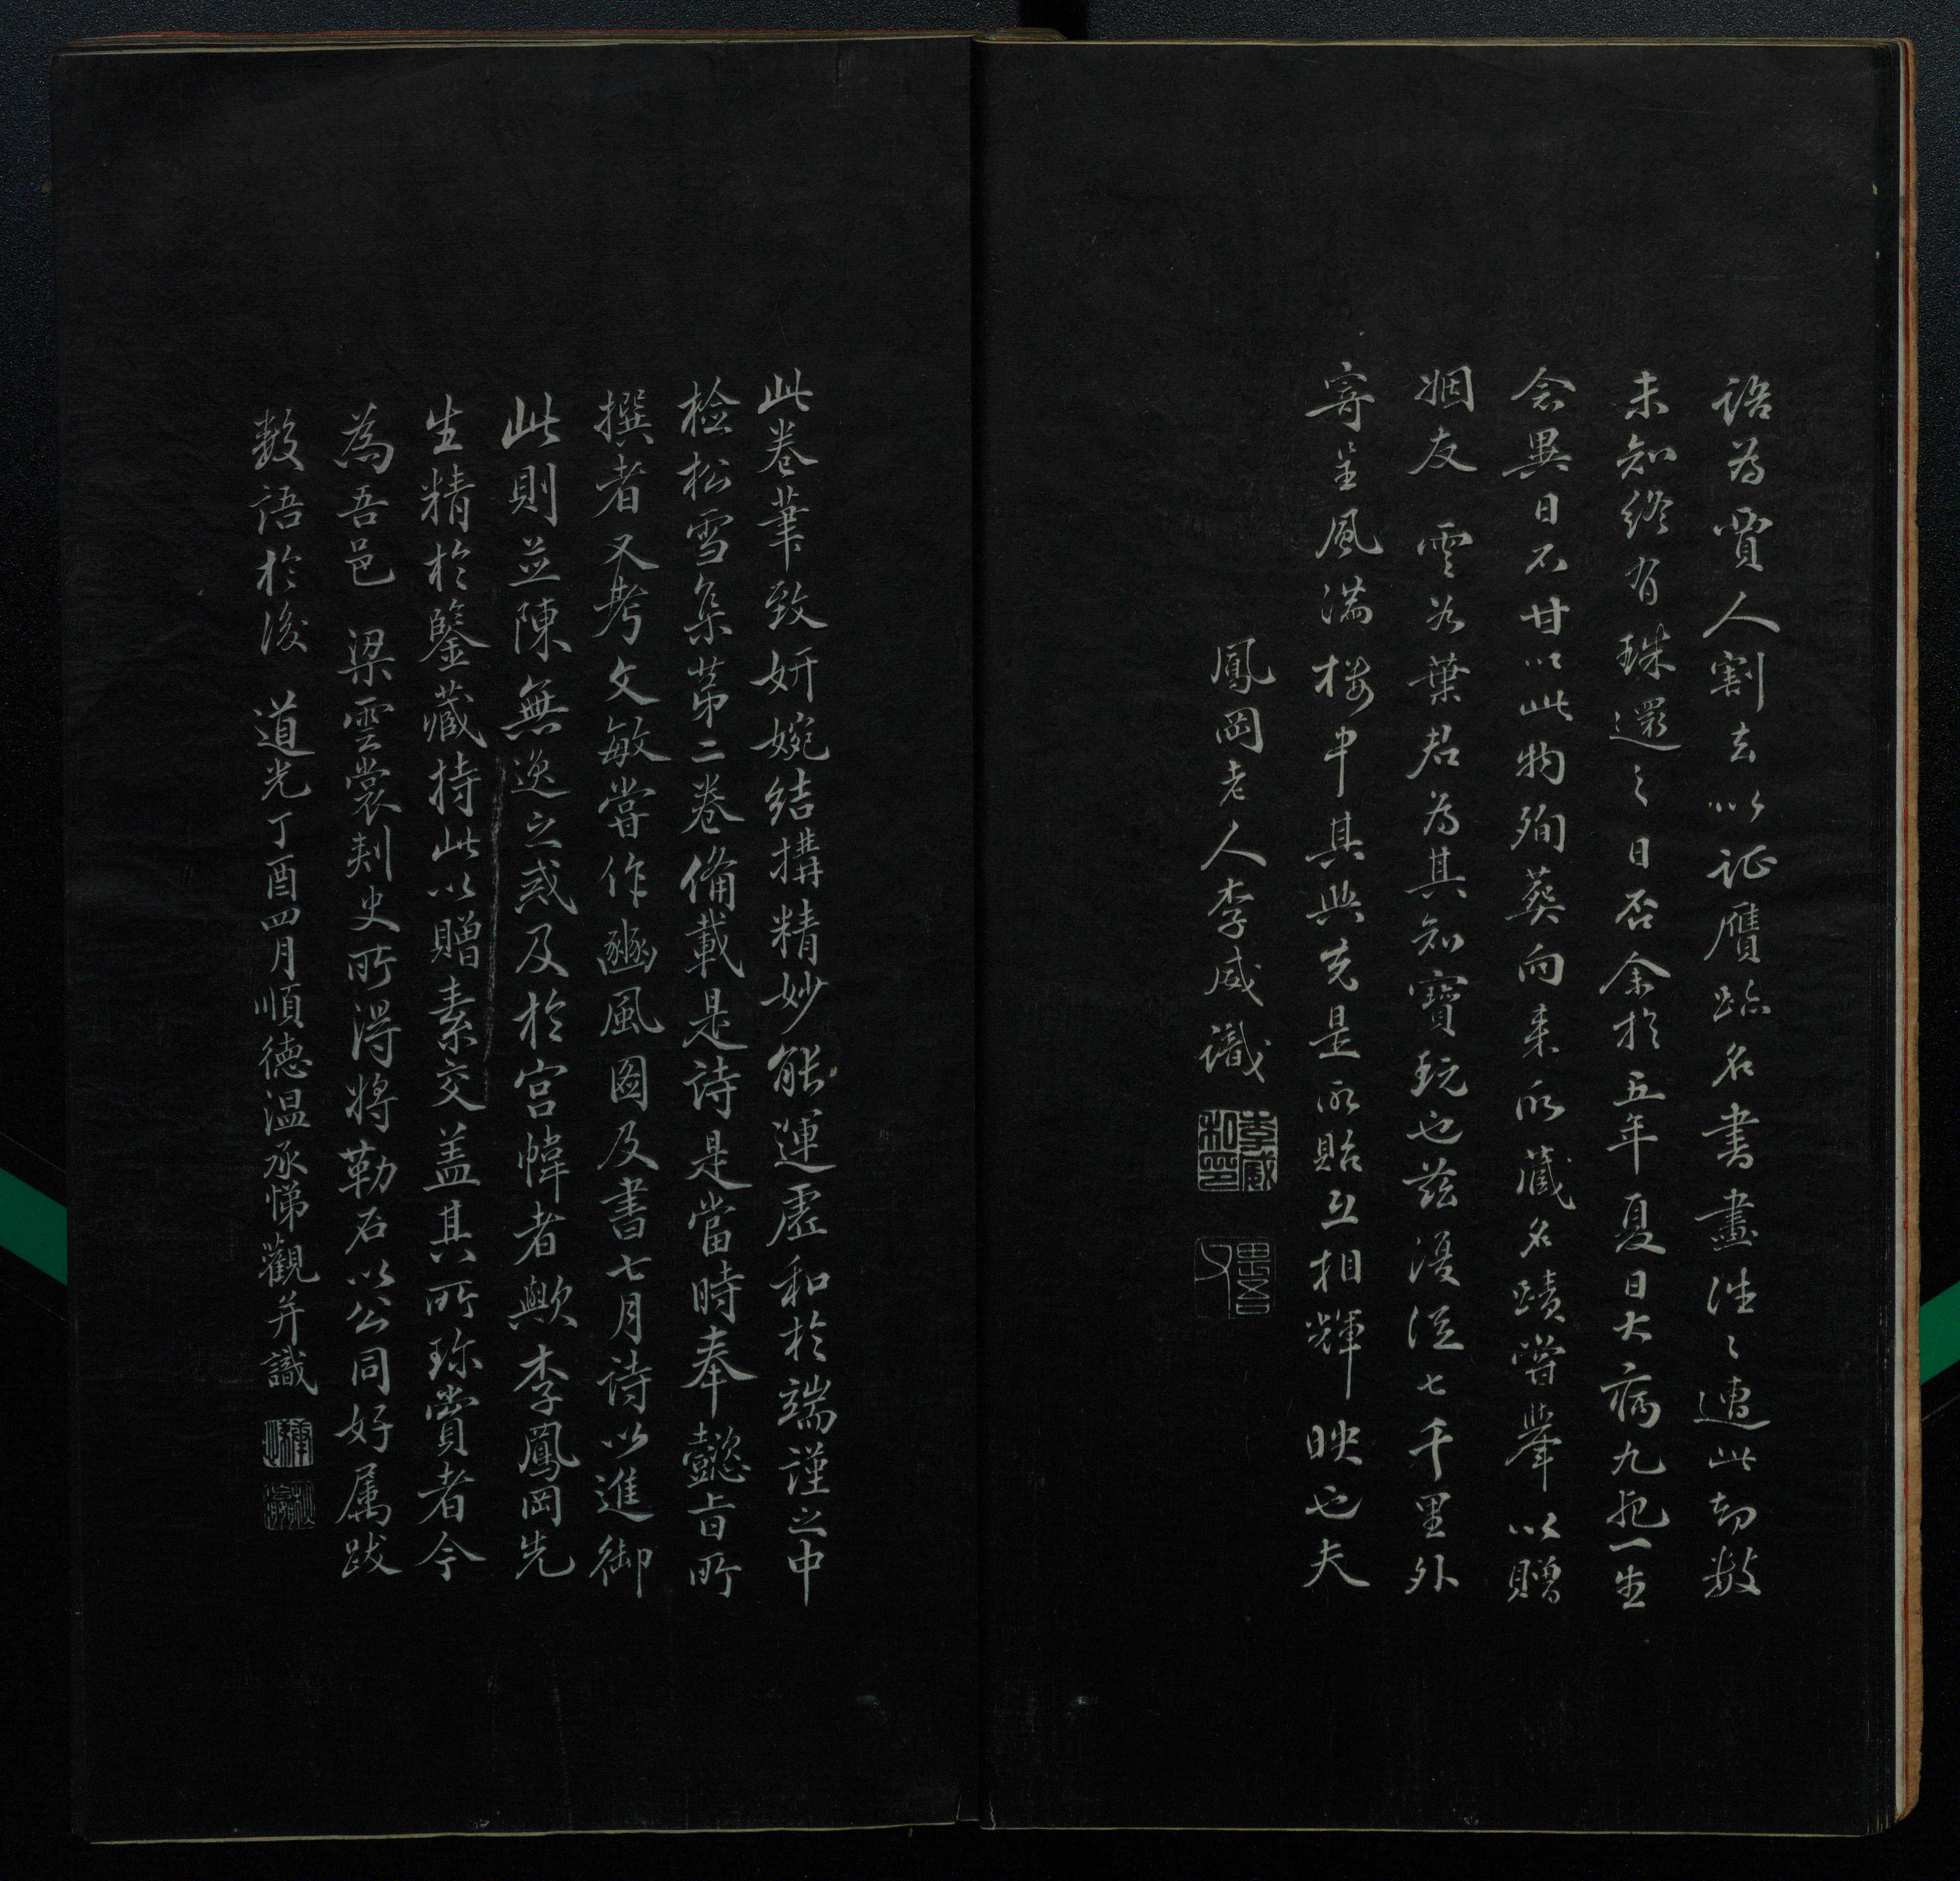 語為賈人割去以証贗跡名書畫往〻遭此劫數
未知終有珠還之日否余於五年夏日大病九死一生
念異日不甘以此物殉葬向來所藏名蹟嘗舉以贈
姻友 雲谷葉君為其知寶玩也茲復從七千里外
寄呈風滿樓中其與先是所貽互相輝映也夫
鳳岡老人李威識
李威和印
此卷筆致妍婉結搆精妙能運虛和於端謹之中
檢松雪集第二卷備載是詩是當時奉懿旨所
撰者又考文敏嘗作豳風圖及書七月詩以進御
此則並陳無逸之戒及於宮幃者歟李鳳岡先
生精於鑒藏持此以贈素交蓋其所珍賞者今
為吾邑 梁雲裳刺史所得將勒石以公同好屬跋
數語於後 道光丁酉四月順德溫承悌觀并識